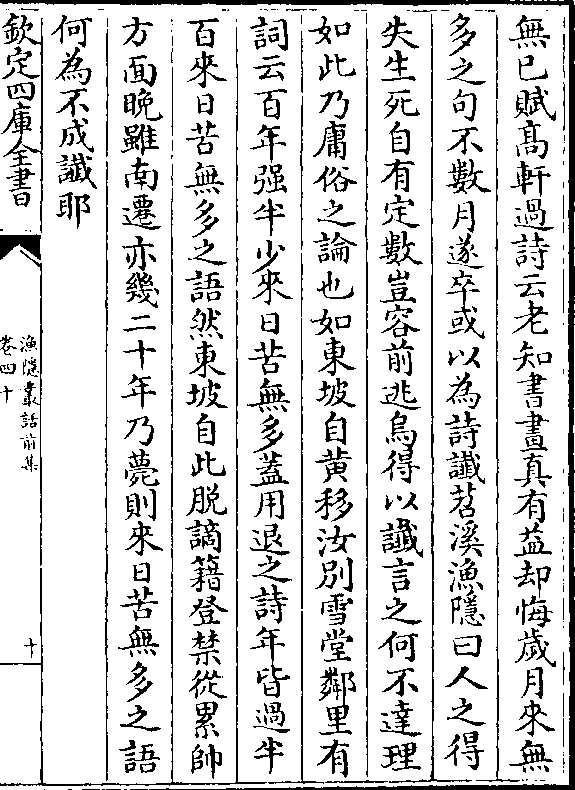 無已賦髙軒過詩云老知書畫真有益却悔歲月來無
多之句不數月遂卒或以為詩讖苕溪漁隱曰人之得
失生死自有定數豈容前逃烏得以讖言之何不達理
如此乃庸俗之論也如東坡自黄移汝别雪堂鄰里有
詞云百年强半少來日苦無多蓋用退之詩年皆過半
百來日苦無多之語然東坡自此脱謫籍登禁從累帥
方面晚雖南遷亦幾二十年乃薨則來日苦無多之語
何為不成讖耶
欽定四庫全書
漁隱叢話前集
卷四十
十